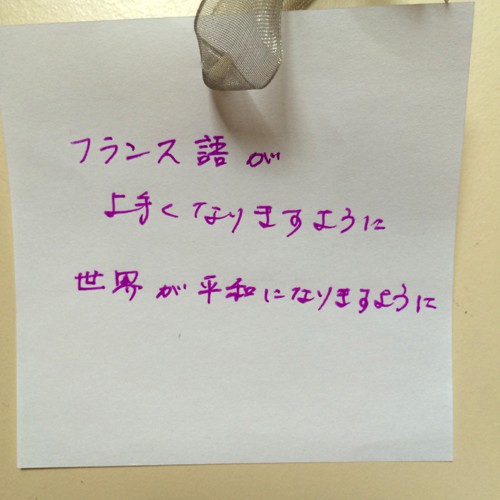 フランス語が
上手くなりますように
世界が平和になりますように